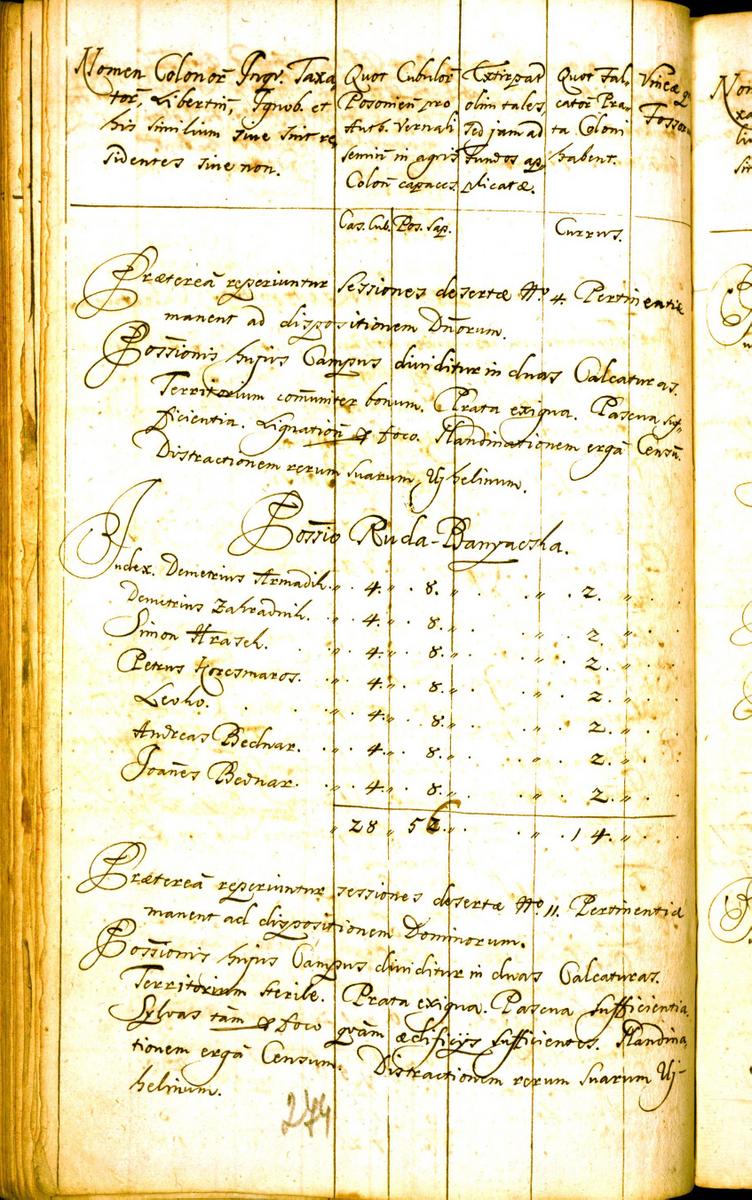 Nomen Colonor̃ Inqv. Taxa,
tor̃, Libertin̄, Ignob. et
his similium sive sint re,
sidentes sive non.
Quot Cubulor̃
Posonien̄ pro
Autb. Vernali
semin̄ in agris
Colon̄ capaces
Extirpat
olim tales,
sed jam ad
fundos ap,
plicatæ.
Quot Fal,
cator̃ Pra,
ta Coloni
habent.
Vineæ q
Fossor
Cas. Cub. Pos. Sap.
Currus.
Præterea reperiuntur sessiones desertæ No. 4. Pertinentiæ
manent ad dispositionem Dn̄orum.
Possionis hujus Campus dividitur in duas Calcaturas.
Territorium com̄uniter bonum. Prata exigua. Pascua suf,
ficientia. Lignation̄ foco. Nandinationem ergà Censū.
Distractionem rerum suarum Uj helinum.
Possio Ruda-Banyacska.
Judex. Demetrius Armadik. „ 4. „ 8. „ . „ . 2. „
Demetrius Zahradnik. „ 4. „ 8. „ . „ 2. „
Simon Hrasek. „ 4. „ 8. „ . „ 2. „
Petrus Korcsmaros. „ 4. „ 8. „ . „ 2. „
Levko. „ 4. „ 8. „ . „ 2. „
Andreas Bednar. „ 4. „ 8. „ . „ 2. „
Joan̄es Bednar. „ 4. „ 8. „ . „ 2. „
„ 28 „ 56 „ . „ . 14. „
Præterea reperiuntur sessiones desertæ No. 11. Pertinentiæ
manent ad dispositionem Dominorum.
Possionis hujus Campus dividitur in duas Calcaturas.
Territorium sterile. Prata exigua. Pascua sufficientia.
Sylvas tàm foco quàm ædificijs sufficientes. Nandina,
tionem ergà Censum. Distractionem rerum suarum Uj-
helinum.
274